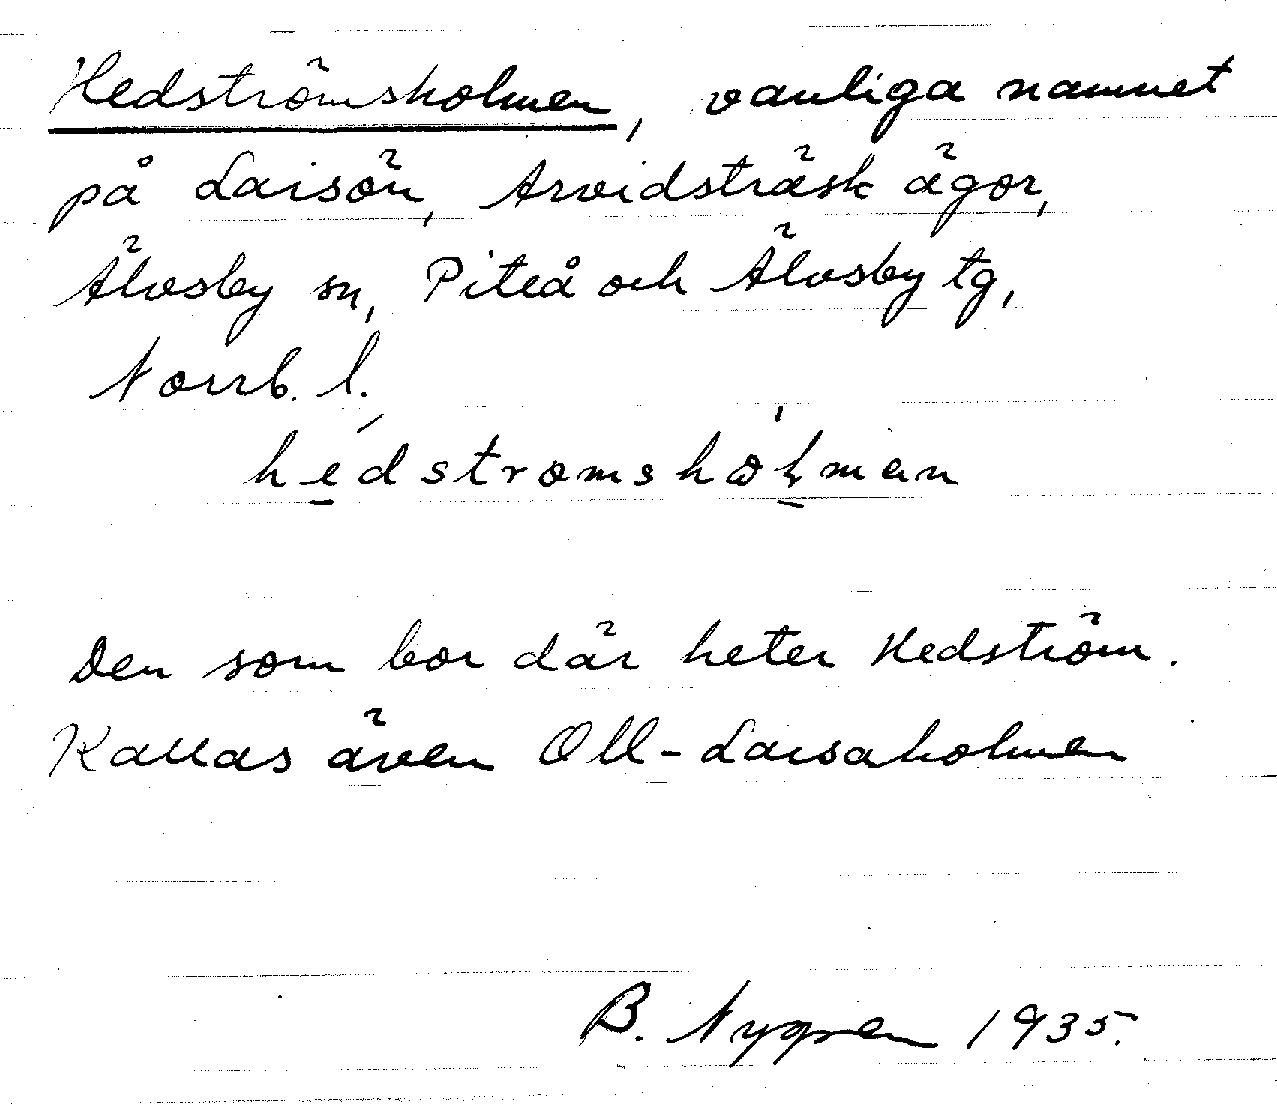 Hedströmsholmen, vanliga namnet
på Laisön, Arvidsträsk ägor,
Älvsby sn, Piteå och Älvsby tg,
Norrb. l.
hedstromsholmen
Den som bor där heter Hedström.
Kallas även Oll-Laisaholmen
B. Nygren 1935.